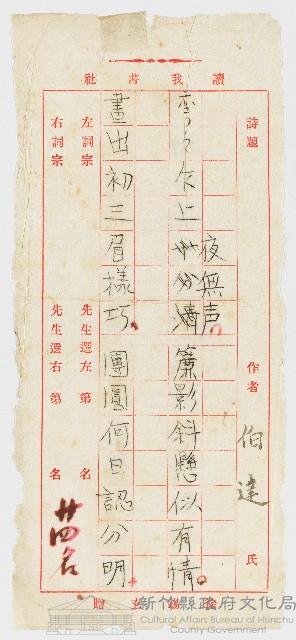 讀我書社
詩題
作者 伯達 氏
夜無声
簾影斜懸似有情
畫出初三眉樣巧
團圓何日認分明
左詞宗 先生選左第 名
右詞宗 先生選右第 名
廿四名
贈
新竹縣政府文化局
Cultural Affairs Bureau of Hsinchu County Government